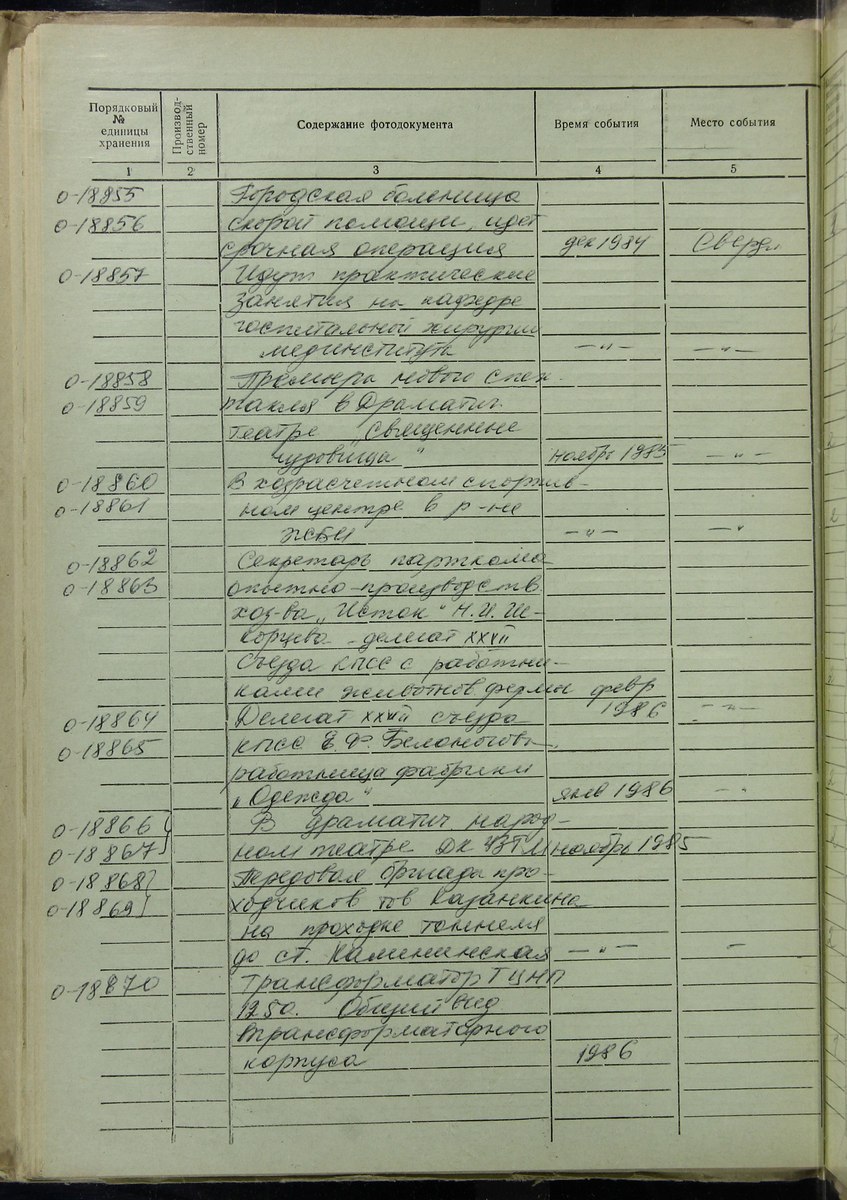 Порядковый № единицы хранения	Производ-ственный номер	Содержание фотодокумента	Время события	Место события
1	2	3	4	5
0-18855	Городская больница
0-18856	скорой помощи, идет
срочная операция	дек 1984	Сверд
0-18857	Идут практические
занятия на кафедре
госпитальной хирургии
мединститута	—"—	—"—
0-18858	Премьера нового спек-
0-18859	такля в Драматич.
театре „Священные
чудовища"	ноябрь 1985	—"—
0-18860	В хозрасчетном спортив-
0-18861	ном центре в р-не
ЖБИ	—"—	—"
0-18862	Секретарь парткома
0-18863	опытно-производств
хоз-ва „Исток" Н.И.
делегат XXVII
съезда КПСС с работни-
ками животнов фермы	февр
0-18864	Делегат XXVII съезда	1986	—"—
0-18865	КПСС Е.Ф.
работница фабрики
„Одежда"	янв 1986	-"
0-18866	В драматич народ-
0-18867	ном театре ДК УЗТМ	ноябрь 1985
0-18868	Передовая бригада про-
0-18869	ходчиков тов Казанкина
на проходке тоннеля
до ст. Калининская	—"—	—
0-18870	Трансформатор ТЦНП
1250. Общий вид
трансформаторного
корпуса	1986